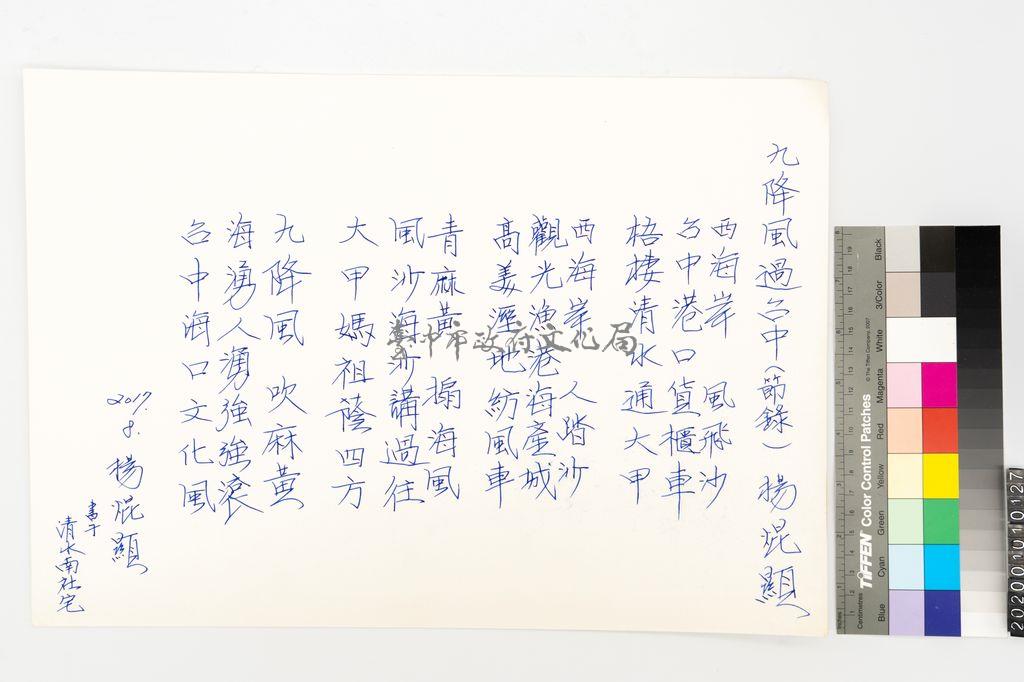 九降風過台中(節錄) 楊焜顯
西海岸 風飛沙
台中港口貨櫃車
梧棲清水通大甲
西海岸 人踏沙
觀光漁港海產城
高美溼地紡風車
青麻黃 搧海風
風沙海沙講過往
大甲媽祖蔭四方
九降風 吹麻黃
海湧人湧強強滾
台中海口文化風
2017.8. 楊焜顯
書于
清水南社宅
臺中市政府文化局
Black
3/Color
White
Magenta
Red
Yellow
Green
Cyan
Blue
TIFFEN Color Control Patches
© The Tiffen Company, 2007
Centimetres
Inches
20200101012​7